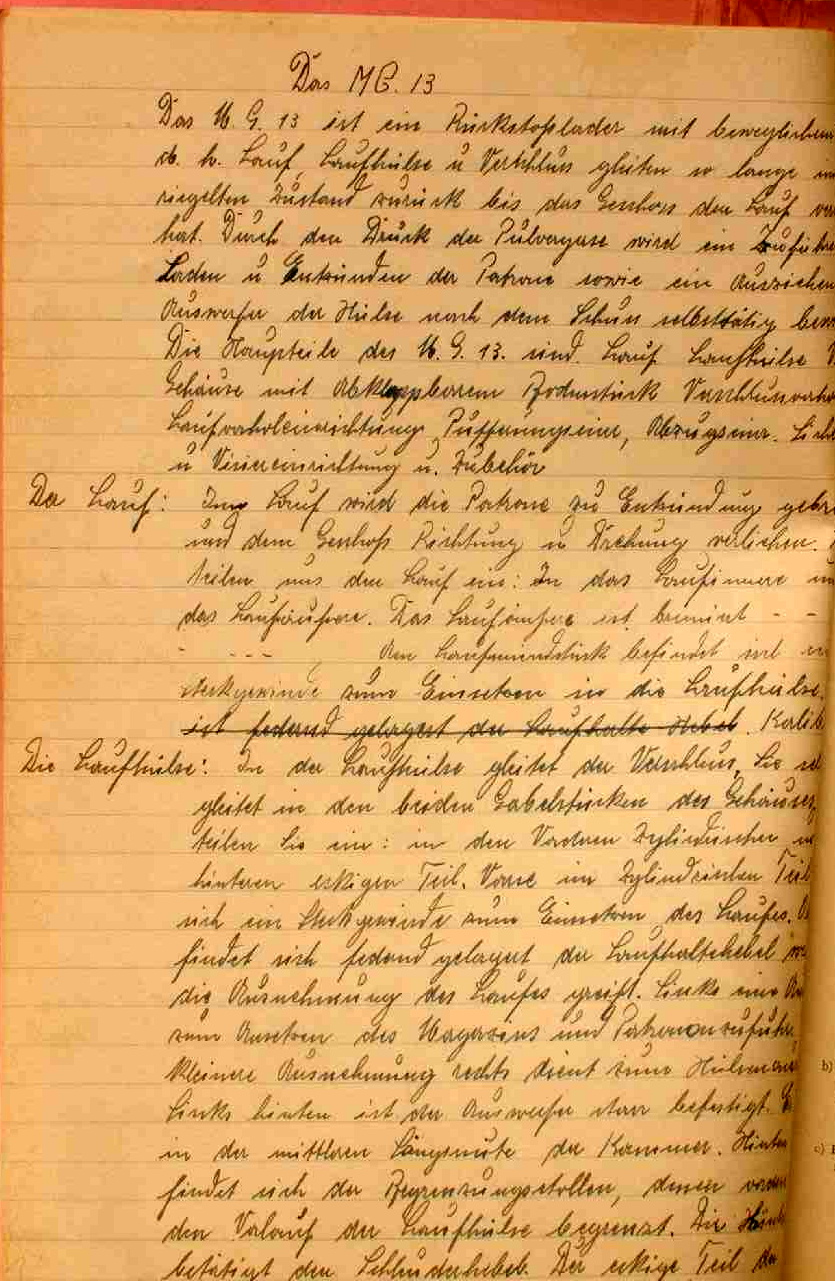 Das MG. 13
Das M. G. 13 ist ein Rückstoßlader mit beweglichem
d. h. Lauf, Laufhülse u Verschluss gleiten so lange im
riegelten Zustand zurück bis das Geschoss den Lauf ver
hat. Durch den Druck der Pulvergase wird ein Zuführe
Laden u Entzünden der Patrone sowie ein Ausziehen
Auswerfer der Hülse nach dem Schuss selbsttätig bew
Die Haupteile des M. G. 13. sind. Lauf Laufhülse V
Gehäuse mit Abklappbarem Bodenstück Verschlussvorho
Laufvorholeinrichtung, Abzugseinr.
u Visiereinrichtung u. Zubehör
Der Lauf: Im Lauf wird die Patrone zu Entzündung gebra
und dem Geschoß Richtung u Drehung verliehen.
teilen uns den Lauf ein: In das Laufinnere un
das Laufäußere. Das Laufäußere ist brüniert - -
- - - Am Laufmundstück befindet sich
Steckgewinde zum Einsetzen in die Laufhülse.
ist federnd gelagert der Laufhalte Hebel.
Die Laufhülse: In der Laufhülse gleitet der Verschluss, Sie
gleitet in den beiden Gabelstücken des Gehäuses,
teilen Sie ein: in den Vorderen Zylindrischen
hinteren eckigen Teil. Vorne im Zylindrischen Teil
sich ein Steckgewinde zum Einsetzen des Laufes.
findet sich federnd gelagert der Laufhaltehebel
die Ausnehmung des Laufes greift. Links eine
zum Ansetzen des Magazins und Patronenzuführ
kleinere Ausnehmung rechts dient zum Hülsenaus
Links hinten ist der Auswerfer starr befestigt.
in der mittleren Längsnute der Kammer. Hinten
findet sich der Begrenzungsstollen, denen vorderer
den Vorlauf der Laufhülse begrenzt. Die
betätigt den Schleuderhebel. Der eckige Teil der
b)
c)